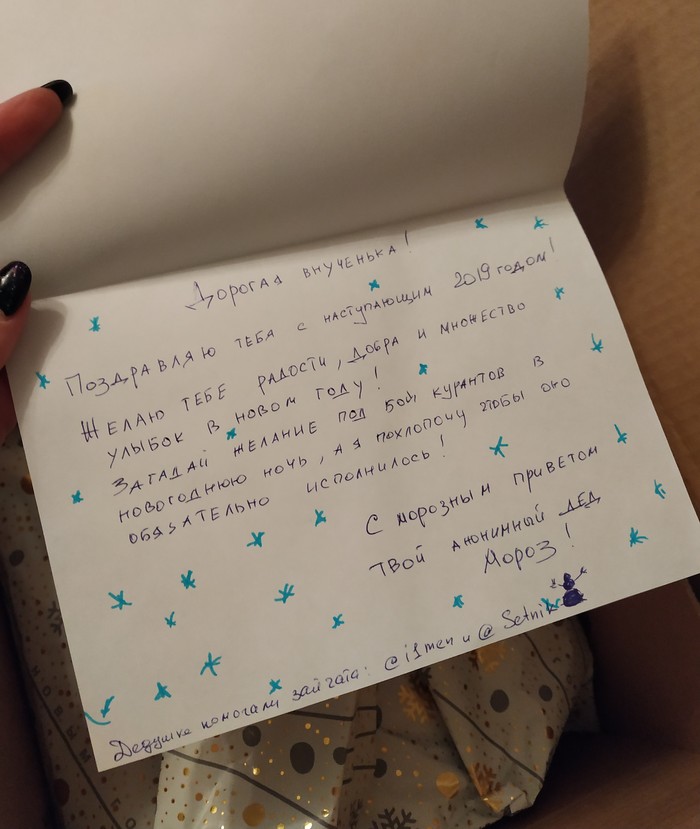 Дорогая внученька!
Поздравляю тебя с наступающим 2019 годом!
Желаю тебе радости, добра и множество
улыбок в новом году!
Загадай желание под бой курантов в
новогоднюю ночь, а я похлопочу чтобы оно
обязательно исполнилось!
С морозным приветом
твой анонимный Дед
Мороз!
Дедушке помогали зайчата: @i1men и @Setnik